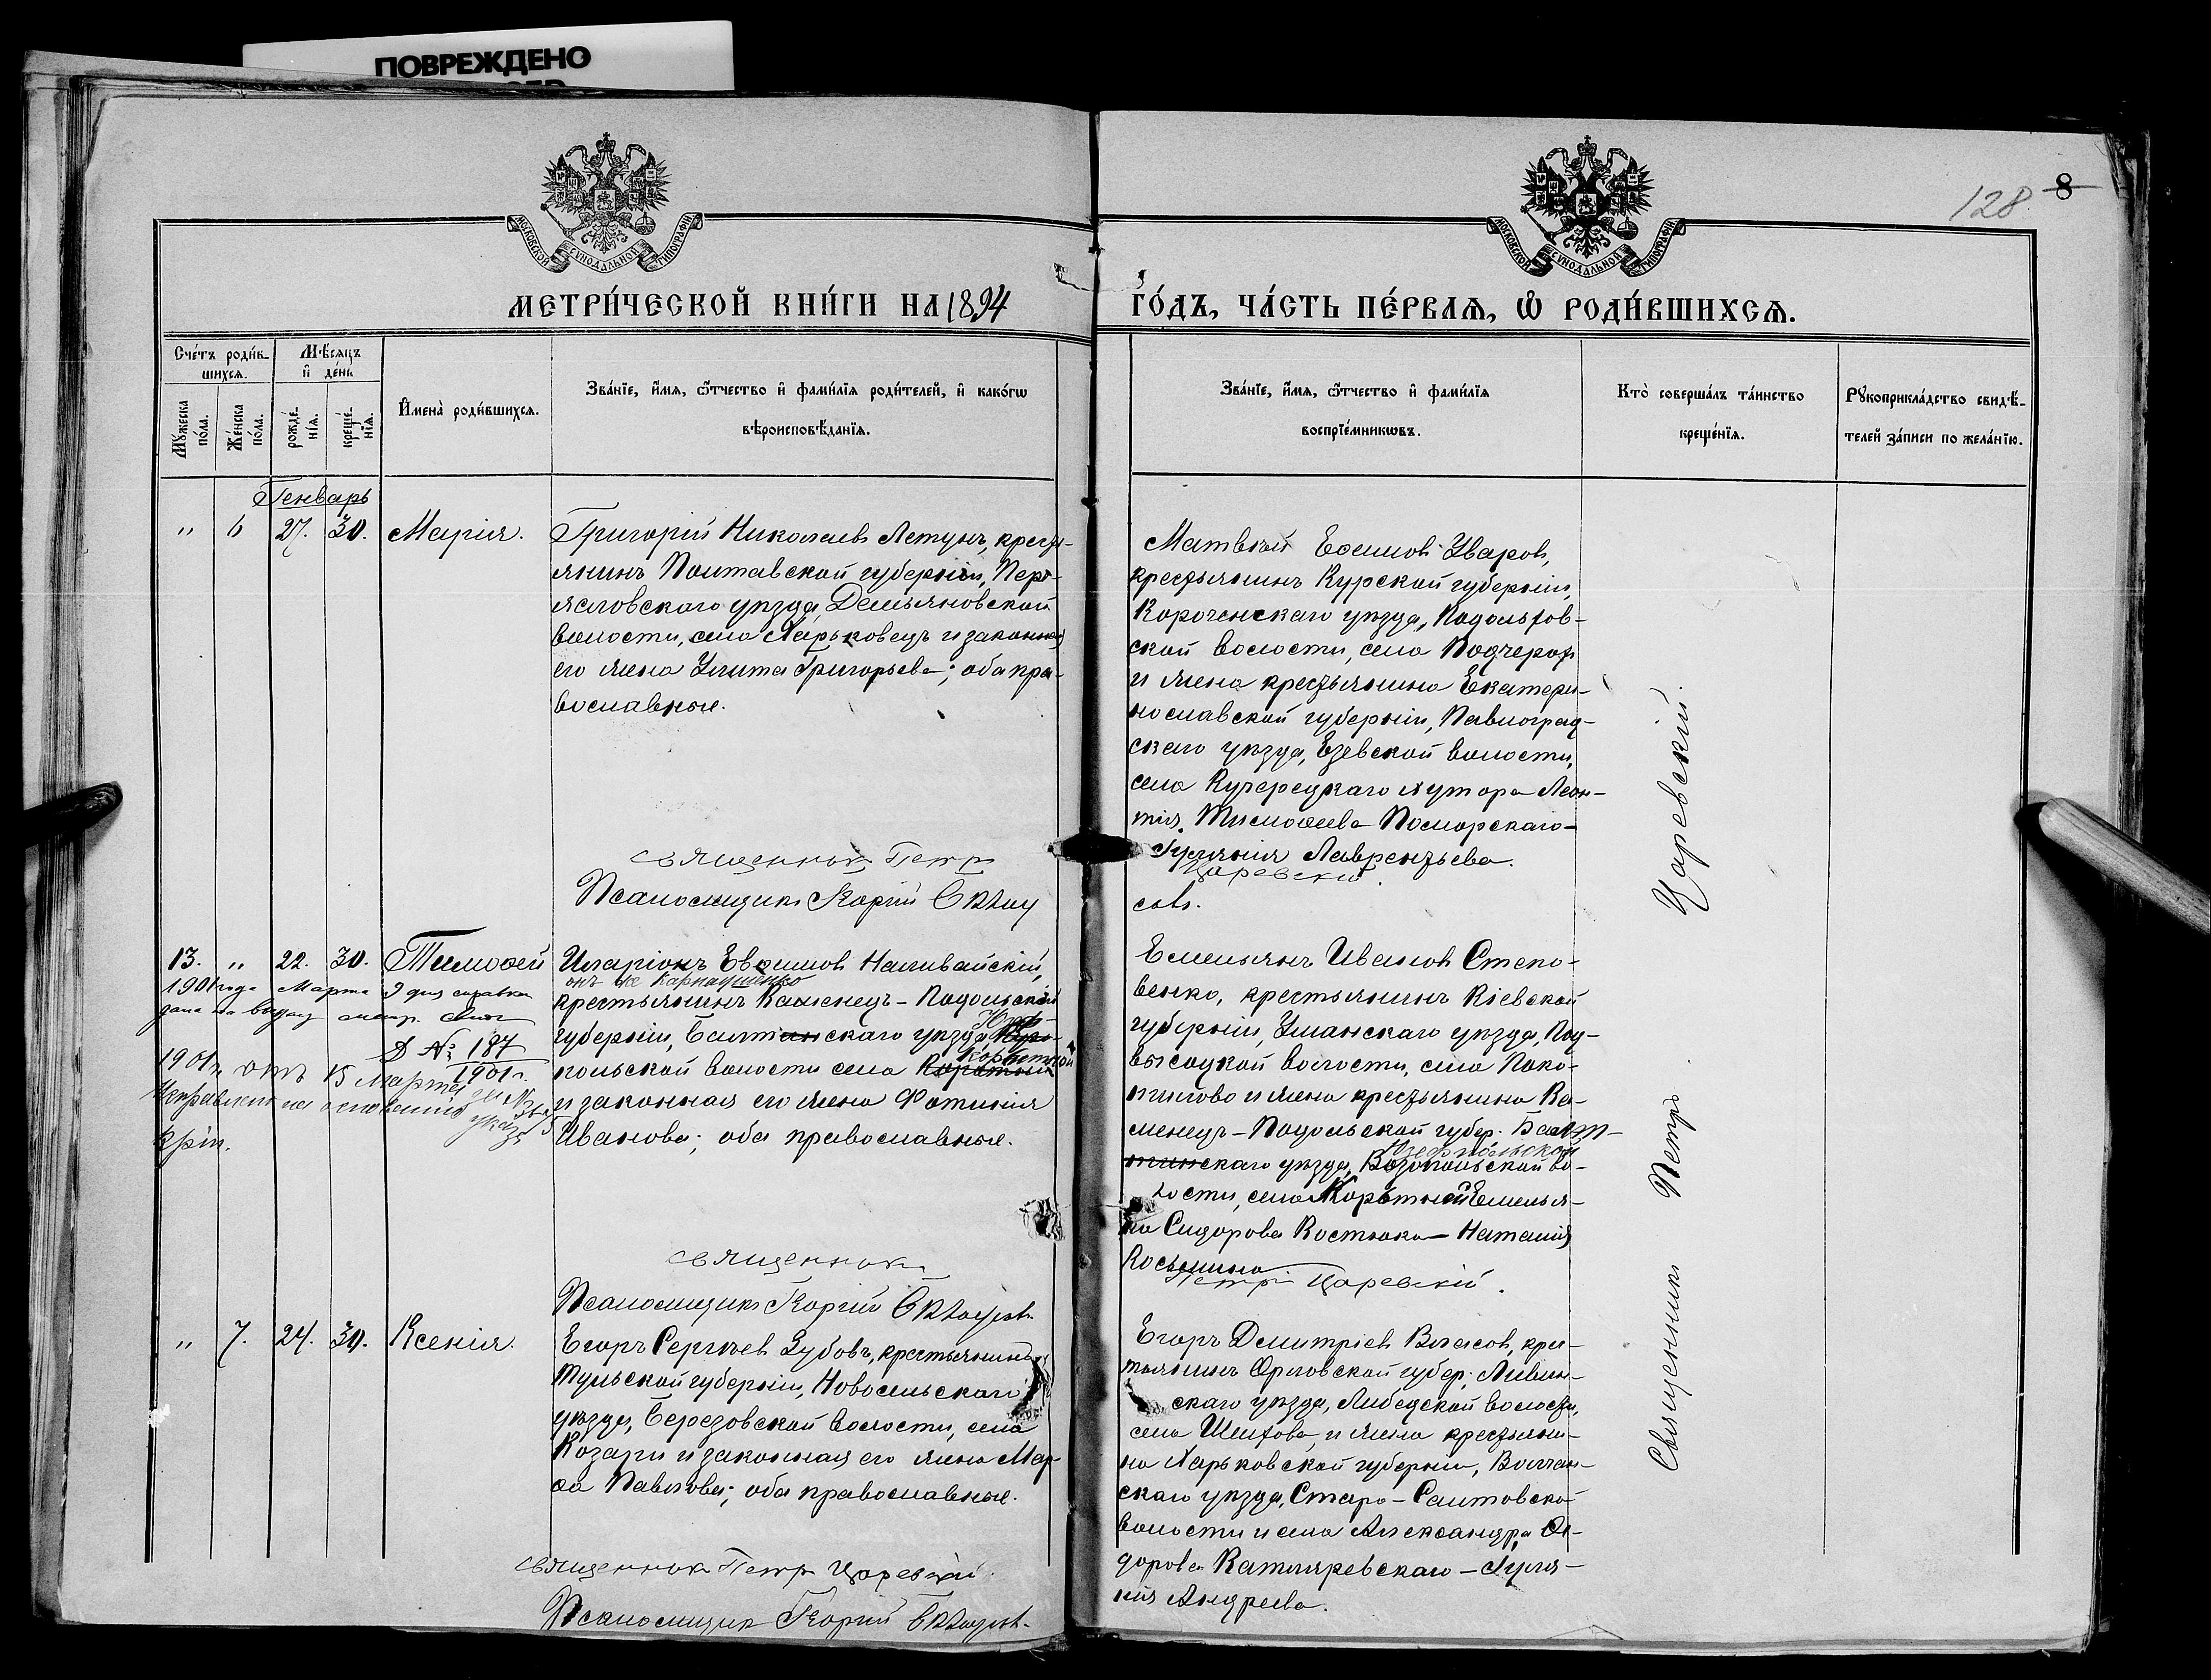 ПОВРЕЖДЕНО
МОСКОВСКОЙ СѴНОДАЛЬНОЙ ТИПОГРАФІИ
МОСКОВСКОЙ СѴНОДАЛЬНОЙ ТИПОГРАФІИ
128 8
МЕТРИ́ЧЕСКОЙ КНИ́ГИ НА 1894
ГО́ДЪ, ЧА́СТЬ ПЕ́РВАѦ, Ѡ РОДИ́ВШИХСѦ.
Сче́тъ роди́в-
шихсѧ.
Мѣ́сѧцъ
и де́нь
Мꙋ́жеска
по́ла.
Же́нска
по́ла.
рожде́-
нїѧ.
креще́-
нїѧ.
И҆мена̀ роди́вшихсѧ.
Зва́нїе, и҆́мѧ, ѻ҆́тчество и҆ фами́лїѧ роди́телей, и҆ како́гѡ
вѣроисповѣ́данїѧ.
Зва́нїе, и҆́мѧ, ѻ҆́тчество и҆ фами́лїѧ
воспрїе́мникѡвъ.
Кто̀ соверша́лъ та́инство
креще́нїѧ.
Рꙋкоприкла́дство свидѣ́-
телей за́писи по жела́нїю.
Генварь
" 6 27. 30. Марія.
Григорій Николаевъ Летунъ, кресть-
янинъ Полтавской губерніи, Пере-
яславскаго уѣзда, Демьяновской
волости, села Харьковецъ и законная
его жена Улита Григорьева; оба пра-
вославные.
священникъ Петръ
Псаломщикъ Георгій
Матвѣй Евѳимовъ Уваровъ,
крестьянинъ Курской губерніи,
Корочанскаго уѣзда, Подольхов-
ской волости, села
и жена крестьянина Екатери-
нославской губерніи, Павлоград-
скаго уѣзда, волости,
села Кучерецкаго хутора Леон-
тія Тимоѳеева Поморскаго—
Гулянія Лаврентьева.
Царевскій.
совъ.
13. " 22. 30. Тимоѳей
1901 года Марта 9 дня справка
дана на выдачу метр. свид.
№ 187
1901 г.
1901 г. отъ 15 Марта за №
Исправлено на основаніи указа
Иларіонъ Евѳимовъ Наливайскій,
онъ же Карнаушенко
крестьянинъ Каменецъ-Подольской
губерніи, Балтинскаго уѣзда,
польской волости села
и законная его жена Фотинія
Иванова; оба православные.
священникъ
Псаломщикъ Георгій
Емельянъ Ивановъ Степо-
венко, крестьянинъ Кіевской
губерніи, Уманскаго уѣзда, Под-
высоцкой волости, села Поко-
тилово и жена крестьянина Ка-
менецъ-Подольской губер. Балт-
тинскаго уѣзда, во-
лости, села Корытной Емелья-
на Сидорова Костюка — Наталія
Косьмина
Петръ Царевскій.
" 7. 24. 30. Ксенія.
Егоръ Сергѣевъ Зубовъ, крестьянинъ
Тульской губерніи, Новосильскаго
уѣзда, Березовской волости, села
Козари и законная его жена Мар-
ѳа Павлова; оба православные.
священникъ Петръ Царевскій.
Псаломщикъ Георгій
Егоръ Димитріевъ Власовъ, крес-
тьянинъ Орловской губер. Ливен-
скаго уѣзда, волости,
села и жена крестьяни-
на Харьковской губерніи, Волчан-
скаго уѣзда, Старо-Салтовской
волости и села Александра Ѳе-
дорова — Гуля-
нія Андреева.
Священникъ Петръ Царевскій.